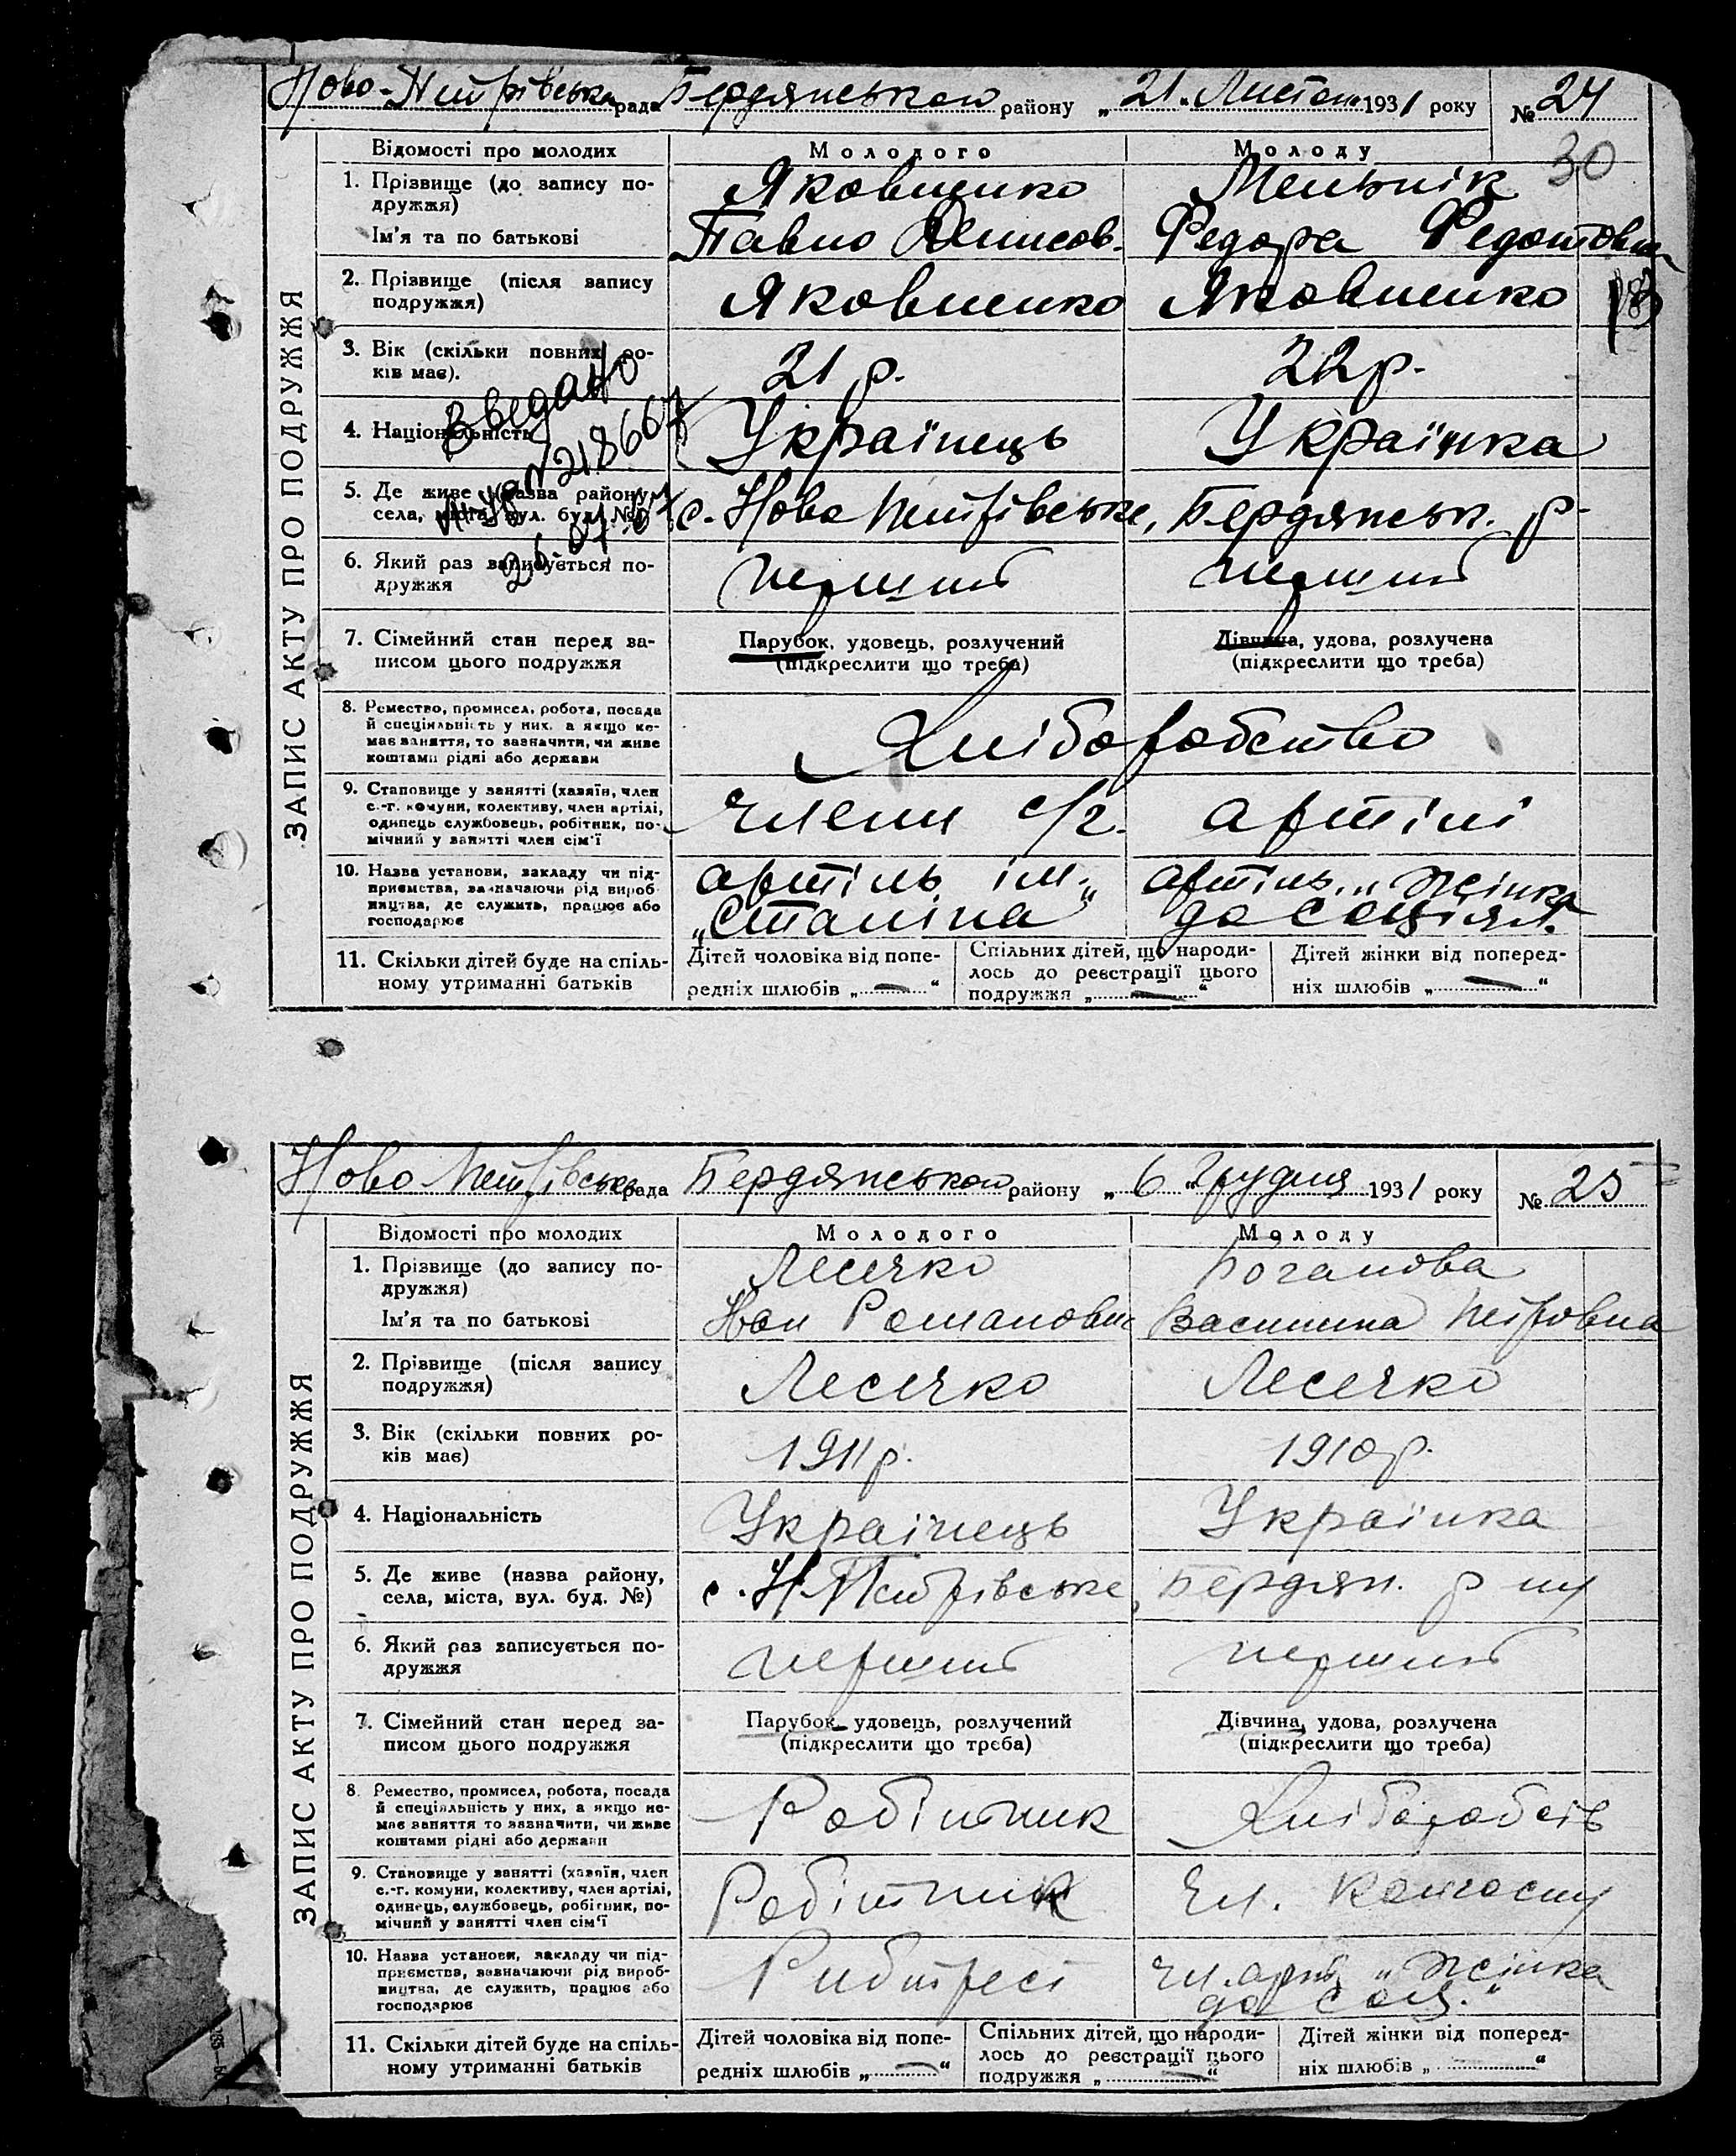 Ново-Петрівська рада Бердянського району „21" Листоп. 1931 року № 24
30
ЗАПИС АКТУ ПРО ПОДРУЖЖЯ
Відомості про молодих Молодого Молоду
1. Прізвище (до запису по- Яковленко Мельнік
дружжя)
Ім'я та по батькові Павло Денисов. Федора Федотовна
2. Прізвище (після запису Яковленко Яковленко
подружжя)
3. Вік (скільки повних ро- 21 р. 22 р.
ків має).
Введано
4. Національність Українець Українка
218667
5. Де живе (назва району, с. Ново Петрівське, Бердянськ. р-
села, міста, вул. буд. №)
6. Який раз записується по- перший перший
дружжя
7. Сімейний стан перед за- Парубок, удовець, розлучений Дівчина, удова, розлучена
писом цього подружжя (підкреслити що треба) (підкреслити що треба)
8. Ремество, промисел, робота, посада Хліборобство
й спеціяльність у них, а якщо не-
має заняття, то зазначити, чи живе
коштами рідні або держави
9. Становище у занятті (хазяїн, член члени с/г. артілі
с.-г. комуни, колективу, член артілі,
одинець службовець, робітник, по-
мічний у занятті член сім'ї
10. Назва установи, закладу чи під- артіль ім. артіль „Жінка
приємства, зазначаючи рід вироб- „Сталіна" до соціял."
ництва, де служить, працює або
господарює
11. Скільки дітей буде на спіль- Дітей чоловіка від попе- Спільних дітей, що народи- Дітей жінки від поперед-
ному утриманні батьків редніх шлюбів „—" лось до реєстрації цього ніх шлюбів „—"
подружжя „—"
Ново Петрівська рада Бердянського району „6" Грудня 1931 року № 25
ЗАПИС АКТУ ПРО ПОДРУЖЖЯ
Відомості про молодих Молодого Молоду
1. Прізвище (до запису по- Лесечко Роганова
дружжя)
Ім'я та по батькові Іван Романович Василина Петровна
2. Прізвище (після запису Лесечко Лесечко
подружжя)
3. Вік (скільки повних ро- 1911 р. 1910 р.
ків має)
4. Національність Українець Українка
5. Де живе (назва району, с. Н. Петрівське, Бердян. р-ну
села, міста, вул. буд. №)
6. Який раз записується по- перший перший
дружжя
7. Сімейний стан перед за- Парубок, удовець, розлучений Дівчина, удова, розлучена
писом цього подружжя (підкреслити що треба) (підкреслити що треба)
8. Ремество, промисел, робота, посада Робітник Хліборобств
й спеціяльність у них, а якщо не-
має заняття то зазначити, чи живе
коштами рідні або держави
9. Становище у занятті (хазяїн, член Робітник Чл. колгоспу
с.-г. комуни, колективу, член артілі,
одинець, службовець, робітник, по-
мічний у занятті член сім'ї
10. Назва установи, закладу чи під- Рибтрест Чл. арт. „Жінка
приємства, зазначаючи рід вироб- до соц."
ництва, де служить, працює або
господарює
11. Скільки дітей буде на спіль- Дітей чоловіка від попе- Спільних дітей, що народи- Дітей жінки від поперед-
ному утриманні батьків редніх шлюбів „—" лось до реєстрації цього ніх шлюбів „"
подружжя „—"